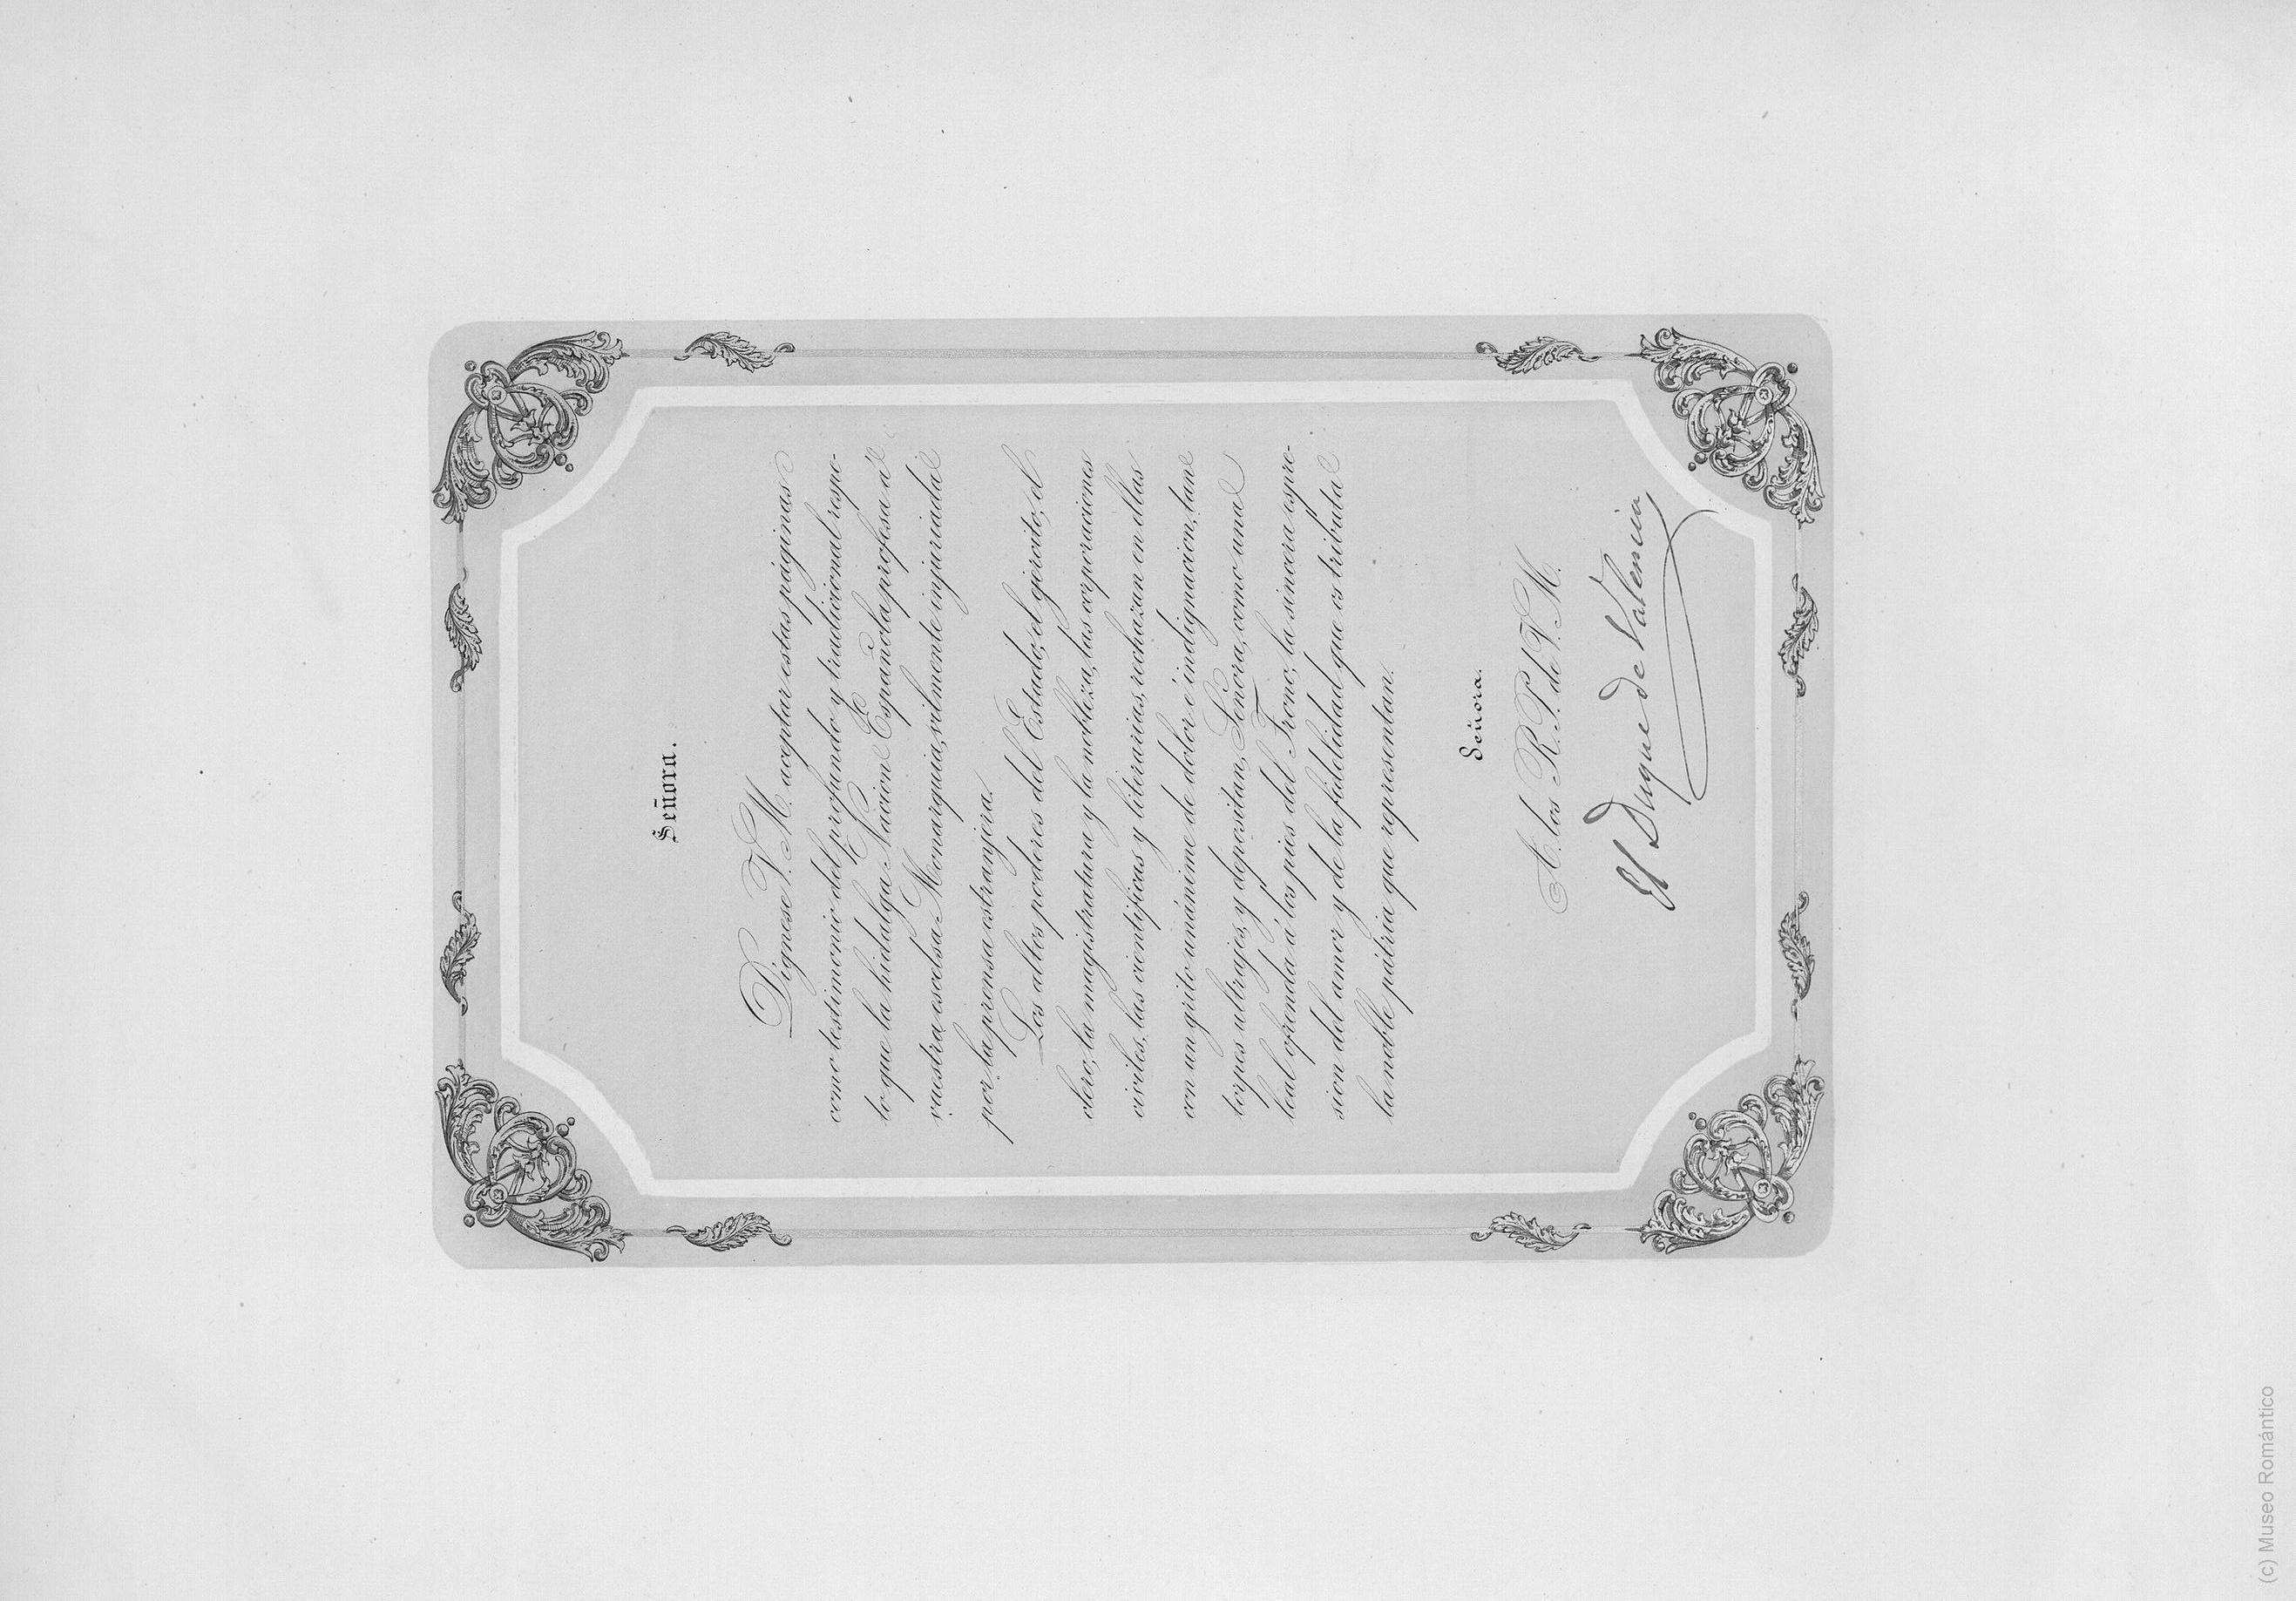 Señora.
Dígnese V. M. aceptar estas páginas
como testimonio del profundo y tradicional respe-
to que la hidalga Nacion Española profesa á
vuestra escelsa Monarquia, vilmente injuriada
por la prensa estranjera.
Los altos poderes del Estado, el ejercito, el
clero, la magistratura y la nobleza, las corporaciones
civiles, las cientificas y literarias, rechazan en ellas
con un grito unánime de dolor é indignacion, tan
torpes ultrajes, y depositan, Señora, como una
leal ofrenda á los pies del Trono, la sincera espre-
sion del amor y de la fidelidad que os tributa
la noble pátria que representan.
Señora.
A. los R. P. de V. M.
El Duque de Valencia
(c) Museo Romántico